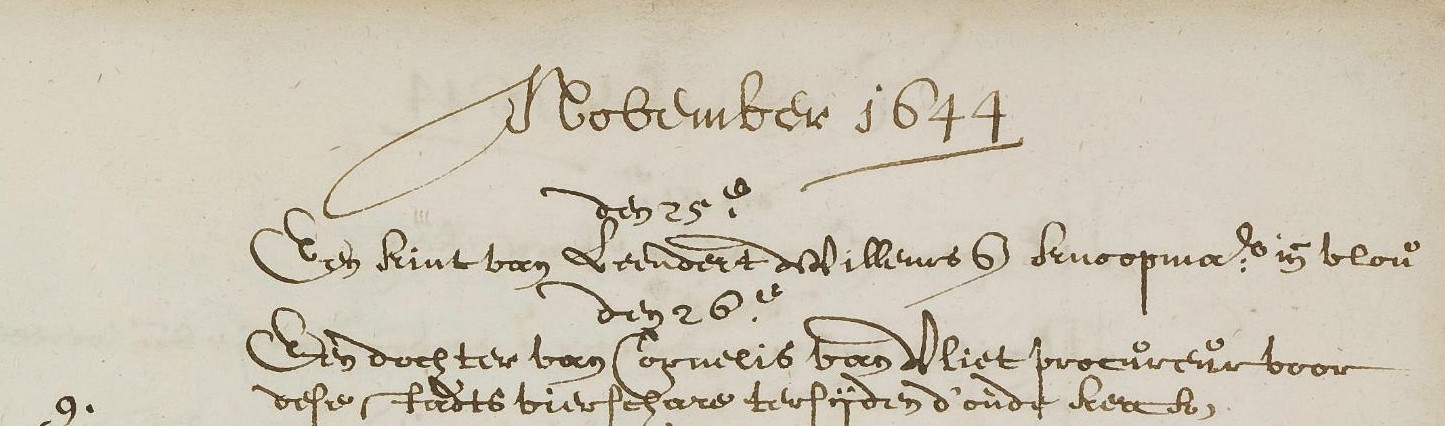 November 1644
den 25.e
Een kint van Leendert Willems S knoopma.r in vlou
den 26.e
Een dochter van Cornelis van Vliet procureur voor
dese stadts vierschare tersijden d'oude kerck
9.